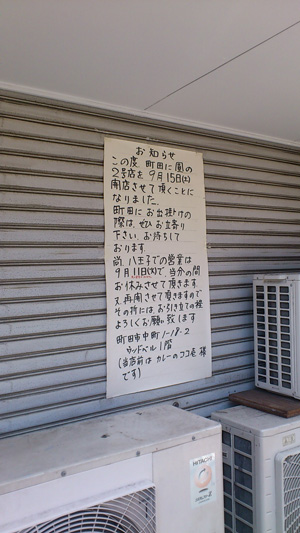 お知らせ
この度 町田に凰の
2号店を9月15日(土)
開店させて頂くことに
なりました。
町田にお出掛けの
際は、ぜひお立寄り
下さい。お待ちして
おります。
尚、八王子での営業は
9月11日(火)で、当分の間
お休みさせて頂きます。
又、再開させて頂きますので
その折には、お引き立ての程
よろしくお願い致します
町田市中町1-18-2
ウッドベル1階
(当店前は カレーのココ壱 様
です)
HITACHI